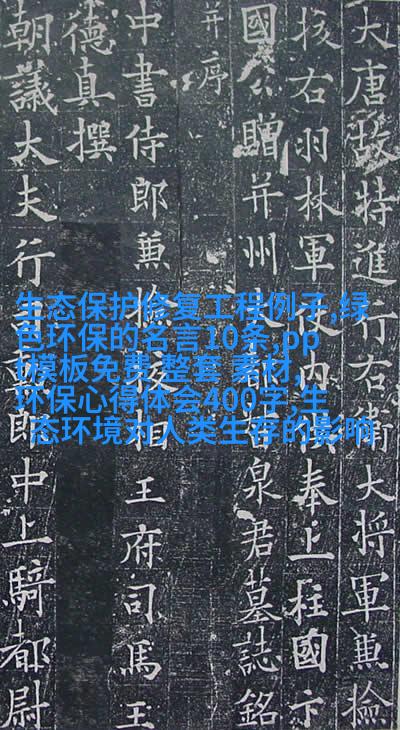 大唐故特進行右衛大將軍兼檢
挍右羽林軍仗內供奉上柱國卞
國公贈并州大都督泉君墓誌銘
并序
中書侍郎兼檢挍相王府司馬王
德真撰
朝議大夫行郎中上騎都尉
生态保护修复工程例子,绿
色环保的名言10条,pp
t模板免费 整套 素材,
环保心得体会400字,生
态环境对人类生存的影响